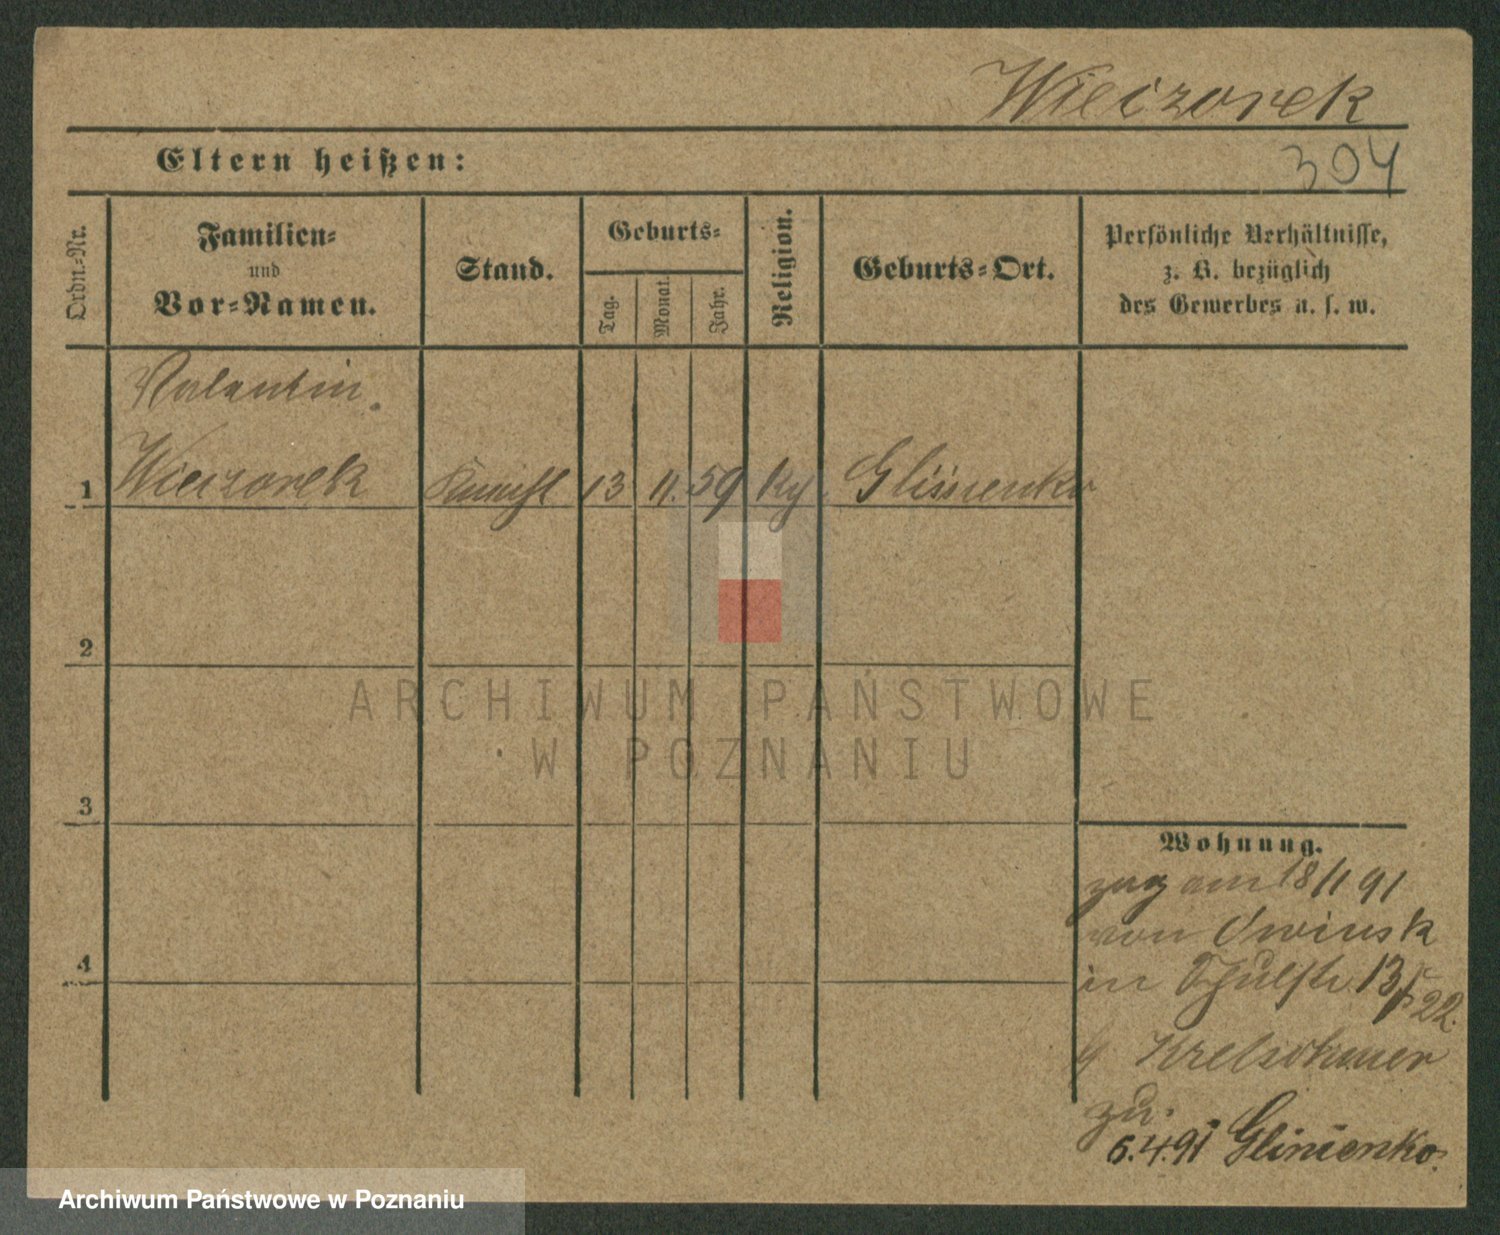 Wieczorek
Eltern heißen:
304
Ordn.-Nr.
Familien-
und
Vor-Namen.
Stand.
Geburts-
Tag.
Monat.
Jahr.
Religion.
Geburts-Ort.
Persönliche Verhältnisse,
z. B. bezüglich
des Gewerbes u. s. w.
Valentin
1 Wieczorek Knecht 13 11. 59 Glinienko
2
3
4
Wohnung.
zug am 18/1 91
von Owinsk
in 13/ 22.
zu.
6.4.91 Glinienko.
ARCHIWUM PAŃSTWOWE
W POZNANIU
Archiwum Państwowe w Poznaniu